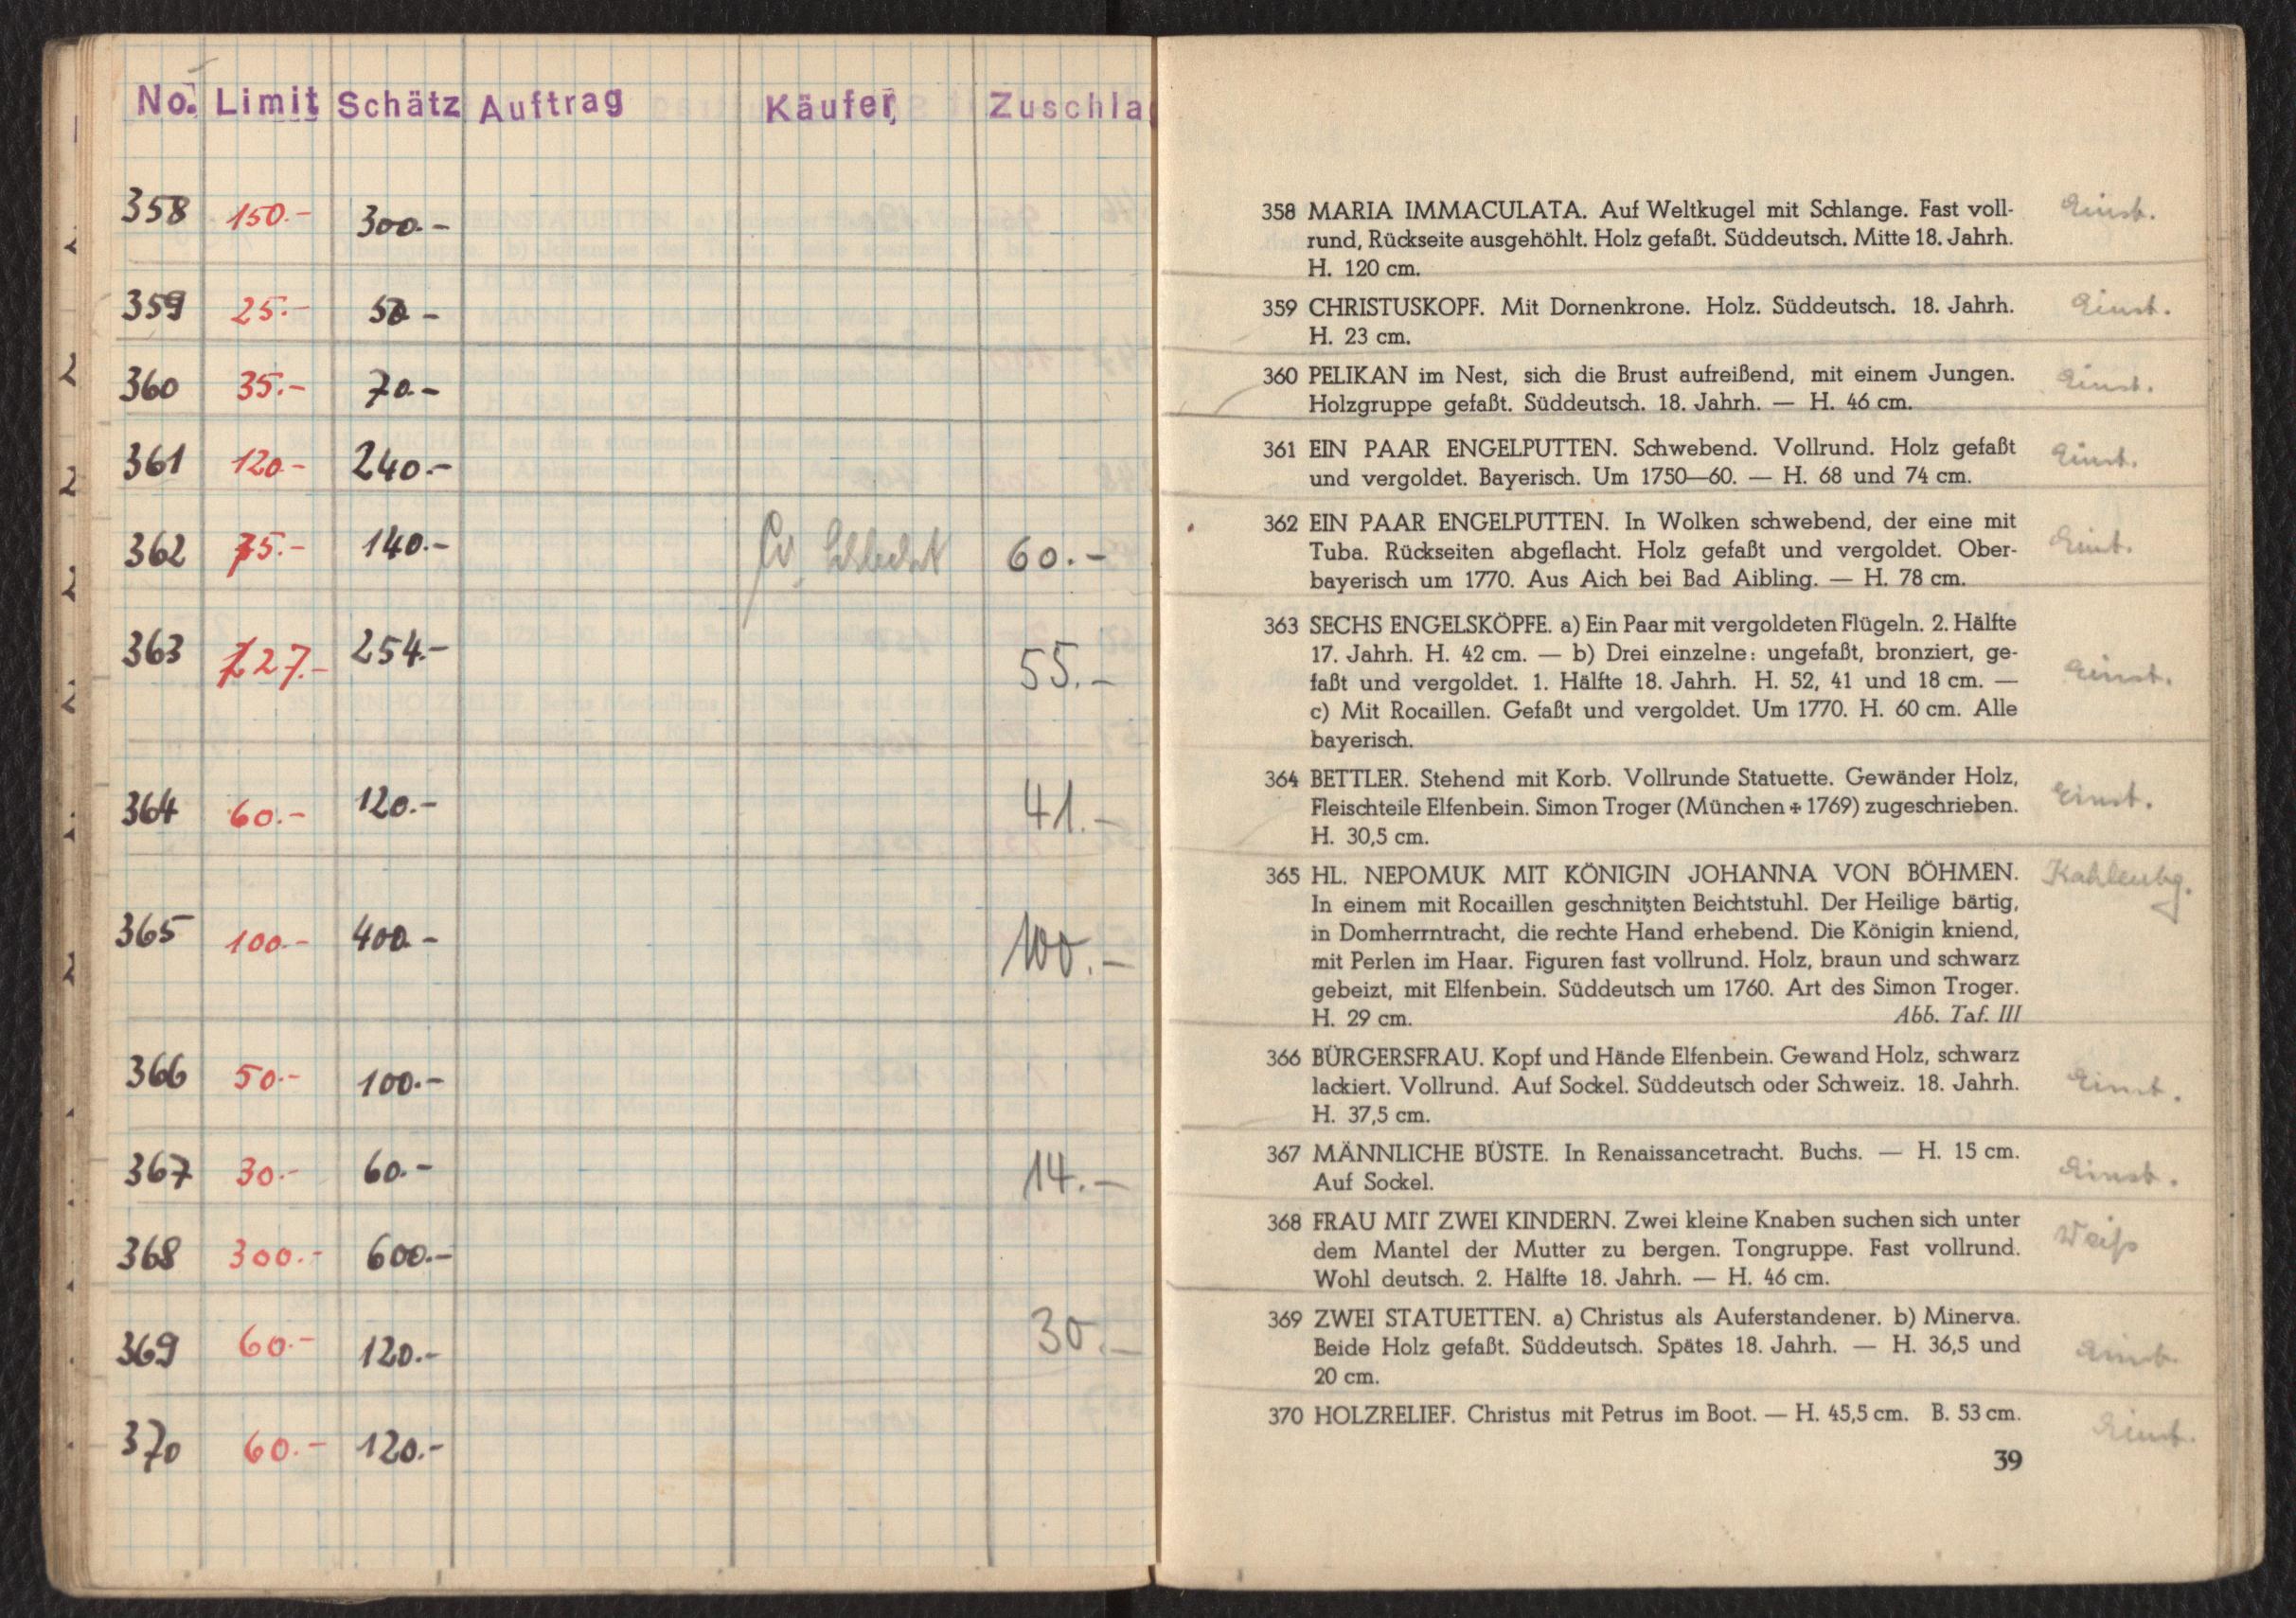 No. Limit Schätz Auftrag Käufer, Zuschla
358 150.- 300.-
359 25.- 50 -
360 35.- 70.-
361 120.- 240.-
362 75.- 140.- 60.-
363 127.- 254.- 55.-
364 60.- 120.- 41.-
365 100.- 400.- 100.-
366 50.- 100.-
367 30.- 60.- 14.-
368 300.- 600.-
369 60.- 120.- 30.-
370 60.- 120.-
358 MARIA IMMACULATA. Auf Weltkugel mit Schlange. Fast voll-
rund, Rückseite ausgehöhlt. Holz gefaßt. Süddeutsch. Mitte 18. Jahrh.
H. 120 cm.
359 CHRISTUSKOPF. Mit Dornenkrone. Holz. Süddeutsch. 18. Jahrh.
H. 23 cm.
360 PELIKAN im Nest, sich die Brust aufreißend, mit einem Jungen.
Holzgruppe gefaßt. Süddeutsch. 18. Jahrh. — H. 46 cm.
361 EIN PAAR ENGELPUTTEN. Schwebend. Vollrund. Holz gefaßt
und vergoldet. Bayerisch. Um 1750—60. — H. 68 und 74 cm.
362 EIN PAAR ENGELPUTTEN. In Wolken schwebend, der eine mit
Tuba. Rückseiten abgeflacht. Holz gefaßt und vergoldet. Ober-
bayerisch um 1770. Aus Aich bei Bad Aibling. — H. 78 cm.
363 SECHS ENGELSKÖPFE. a) Ein Paar mit vergoldeten Flügeln. 2. Hälfte
17. Jahrh. H. 42 cm. — b) Drei einzelne: ungefaßt, bronziert, ge-
faßt und vergoldet. 1. Hälfte 18. Jahrh. H. 52, 41 und 18 cm. —
c) Mit Rocaillen. Gefaßt und vergoldet. Um 1770. H. 60 cm. Alle
bayerisch.
364 BETTLER. Stehend mit Korb. Vollrunde Statuette. Gewänder Holz,
Fleischteile Elfenbein. Simon Troger (München + 1769) zugeschrieben.
H. 30,5 cm.
365 HL. NEPOMUK MIT KÖNIGIN JOHANNA VON BÖHMEN. Kahlenbg.
In einem mit Rocaillen geschnitzten Beichtstuhl. Der Heilige bärtig,
in Domherrntracht, die rechte Hand erhebend. Die Königin kniend,
mit Perlen im Haar. Figuren fast vollrund. Holz, braun und schwarz
gebeizt, mit Elfenbein. Süddeutsch um 1760. Art des Simon Troger.
H. 29 cm. Abb. Taf. III
366 BÜRGERSFRAU. Kopf und Hände Elfenbein. Gewand Holz, schwarz
lackiert. Vollrund. Auf Sockel. Süddeutsch oder Schweiz. 18. Jahrh.
H. 37,5 cm.
367 MÄNNLICHE BÜSTE. In Renaissancetracht. Buchs. — H. 15 cm.
Auf Sockel.
368 FRAU MIT ZWEI KINDERN. Zwei kleine Knaben suchen sich unter
dem Mantel der Mutter zu bergen. Tongruppe. Fast vollrund. Weiß
Wohl deutsch. 2. Hälfte 18. Jahrh. — H. 46 cm.
369 ZWEI STATUETTEN. a) Christus als Auferstandener. b) Minerva.
Beide Holz gefaßt. Süddeutsch. Spätes 18. Jahrh. — H. 36,5 und
20 cm.
370 HOLZRELIEF. Christus mit Petrus im Boot. — H. 45,5 cm. B. 53 cm.
39